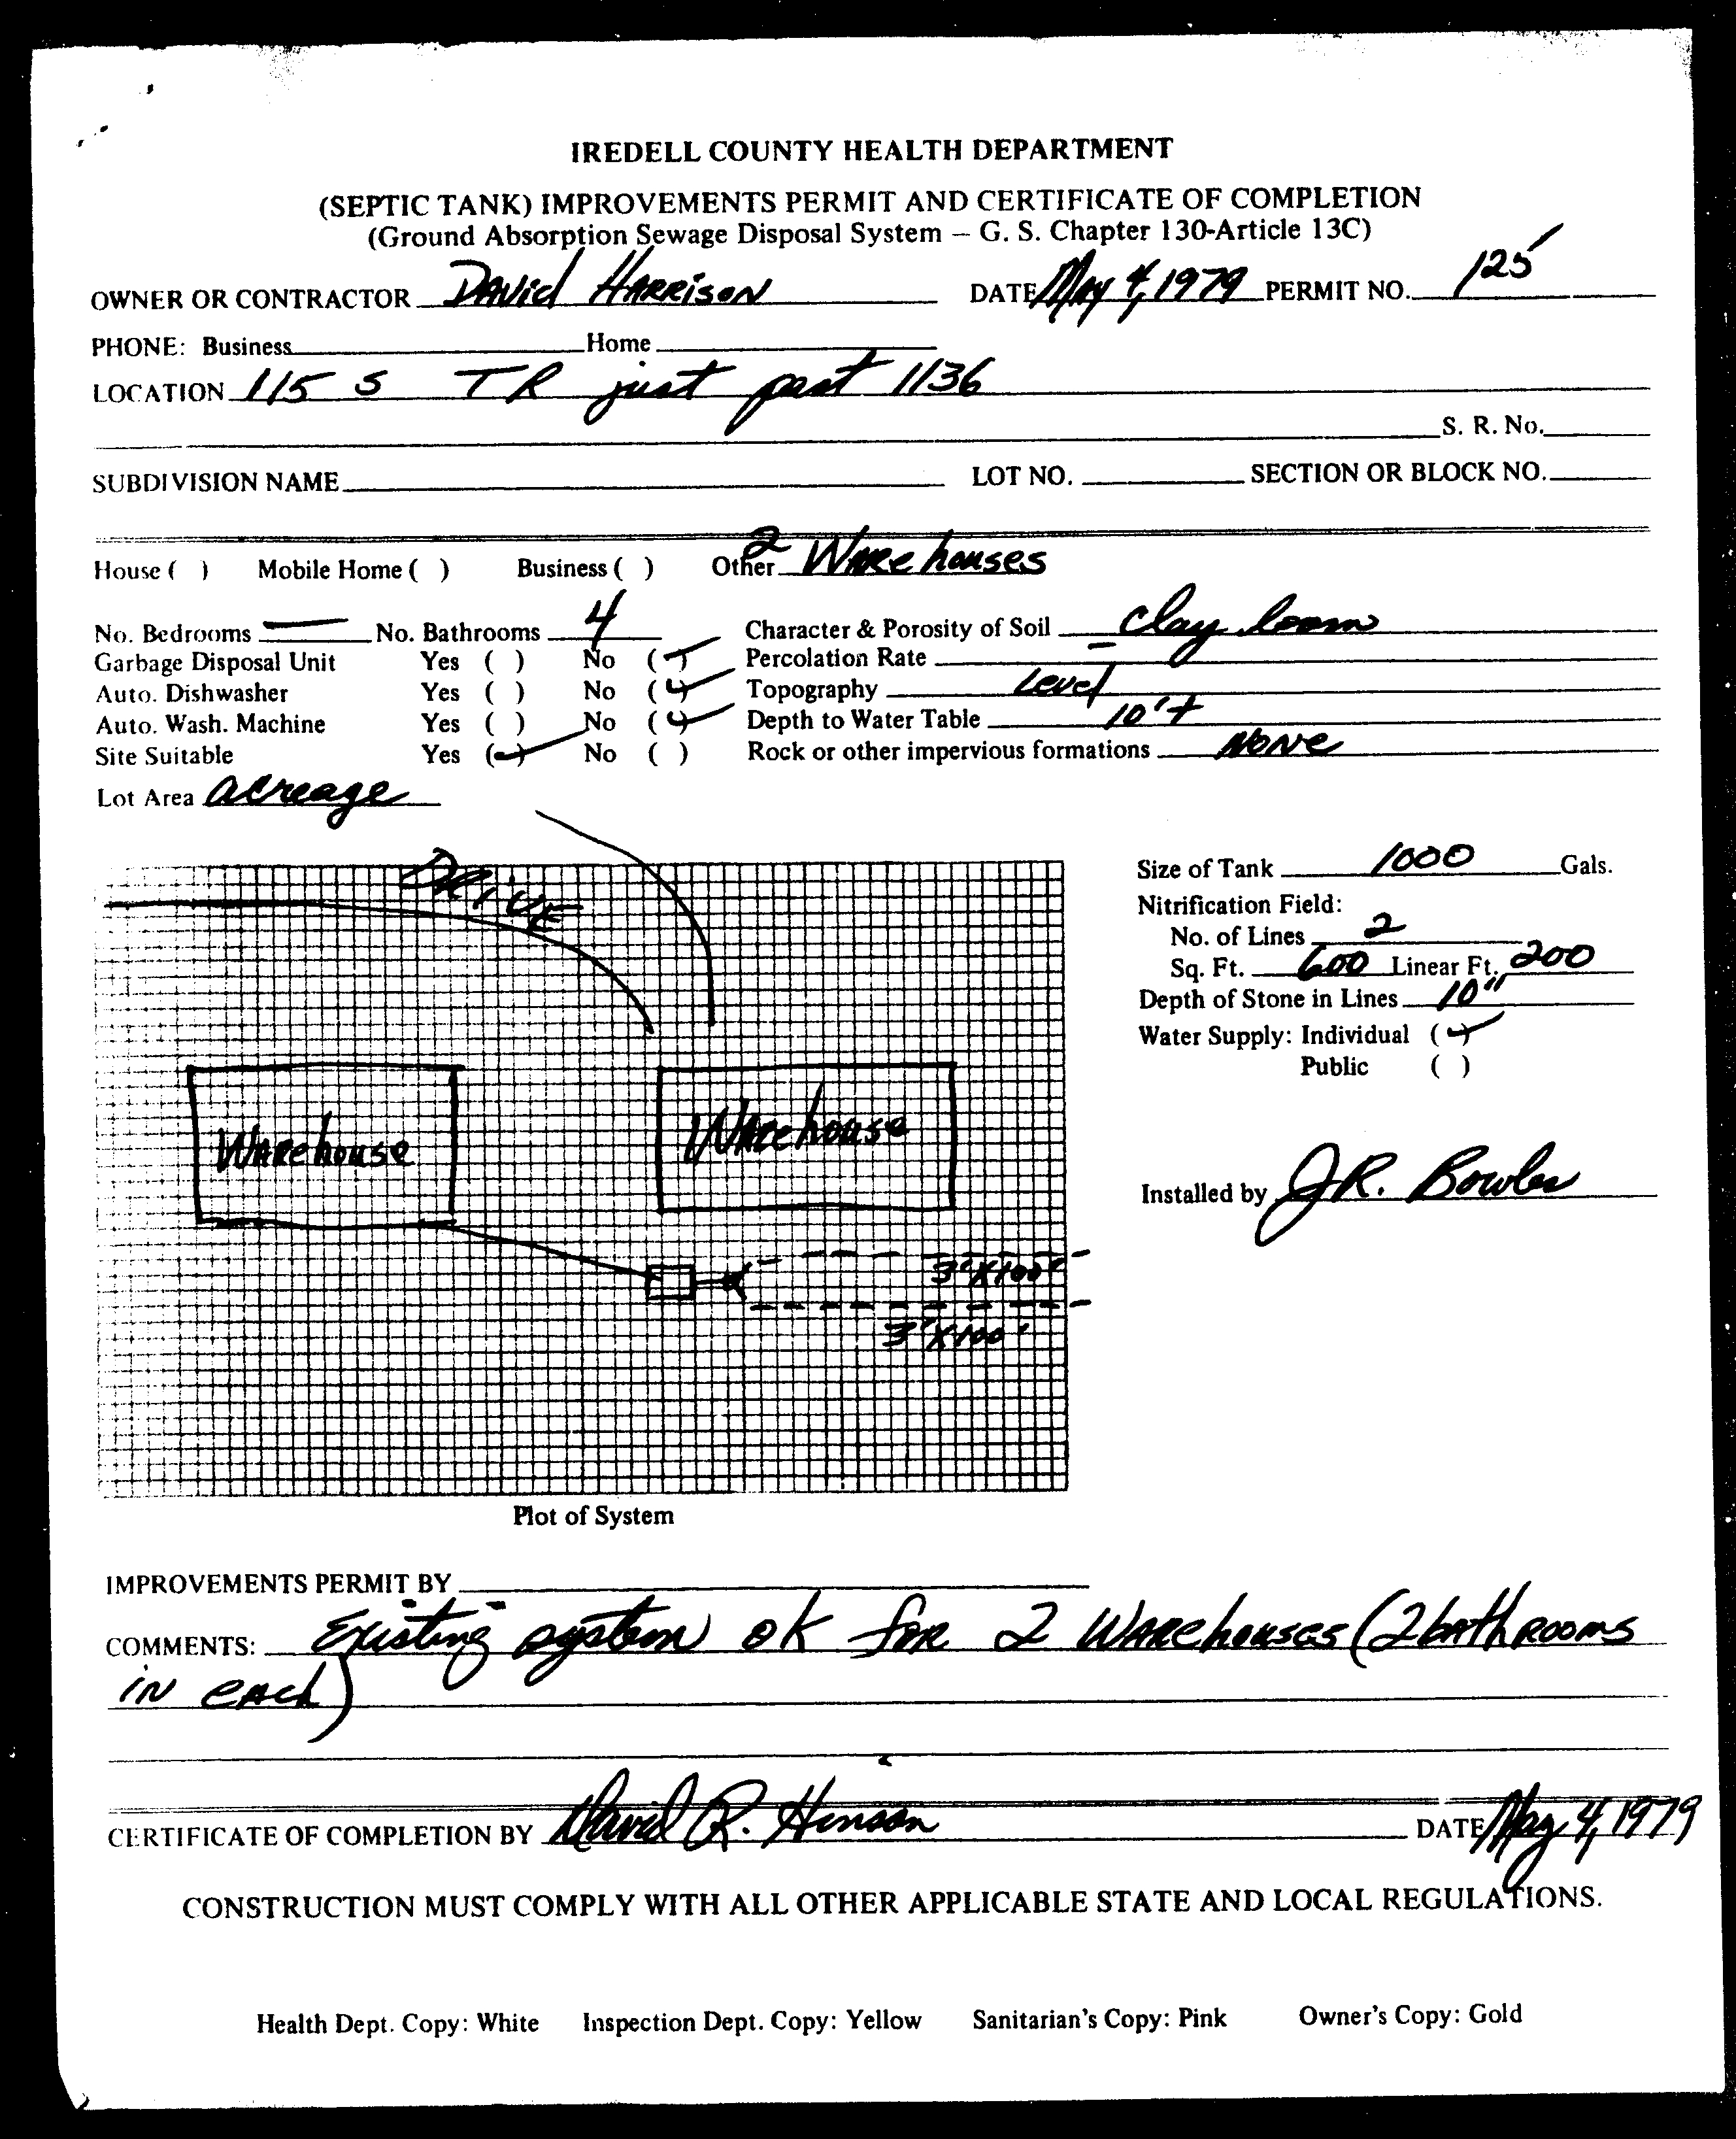 IREDELL COUNTY HEALTH DEPARTMENT
(SEPTIC TANK) IMPROVEMENTS PERMIT AND CERTIFICATE OF COMPLETION
(Ground Absorption Sewage Disposal System – G. S. Chapter 130-Article 13C)
OWNER OR CONTRACTOR David Harrison DATE May 4, 1979 PERMIT NO. 125
PHONE: Business Home
LOCATION 115 S TR just past 1136
S. R. No.
SUBDIVISION NAME LOT NO. SECTION OR BLOCK NO.
House ( ) Mobile Home ( ) Business ( ) Other 2 Warehouses
No. Bedrooms — No. Bathrooms 4 Character & Porosity of Soil clay loam
Garbage Disposal Unit Yes ( ) No (✓) Percolation Rate –
Auto. Dishwasher Yes ( ) No (✓) Topography Level
Auto. Wash. Machine Yes ( ) No (✓) Depth to Water Table 10'+
Site Suitable Yes (✓) No ( ) Rock or other impervious formations NONE
Lot Area acreage
Drive
Size of Tank 1000 Gals.
Nitrification Field:
No. of Lines 2
Sq. Ft. 600 Linear Ft. 200
Depth of Stone in Lines 10"
Water Supply: Individual (✓)
Public ( )
Warehouse Warehouse
Installed by J.R. Bowles
3'X100'
3'X100'
Plot of System
IMPROVEMENTS PERMIT BY
COMMENTS: Existing system ok for 2 Warehouses (2 bathrooms
in each)
CERTIFICATE OF COMPLETION BY David R. Hinson DATE May 4, 1979
CONSTRUCTION MUST COMPLY WITH ALL OTHER APPLICABLE STATE AND LOCAL REGULATIONS.
Health Dept. Copy: White Inspection Dept. Copy: Yellow Sanitarian's Copy: Pink Owner's Copy: Gold